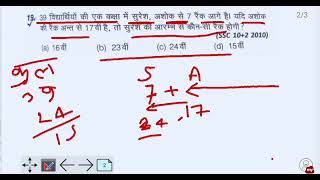 19. 39 विद्यार्थियों की एक कक्षा में सुरेश, अशोक से 7 रैंक आगे है। यदि अशोक
की रैंक अन्त से 17वीं है, तो सुरेश की आरम्भ से कौन-सी रैंक होगी?
(SSC 10+2 2010)
(a) 16वीं (b) 23वीं (c) 24वीं (d) 15वीं
2/3
कुल S A
39 7 + 17
24 24
15
2